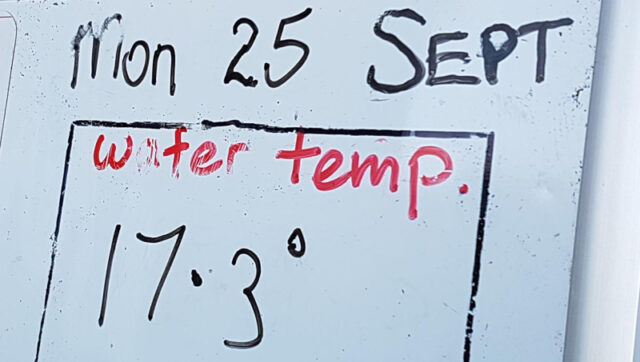 Mon 25 SEPT
water temp.
17.3°